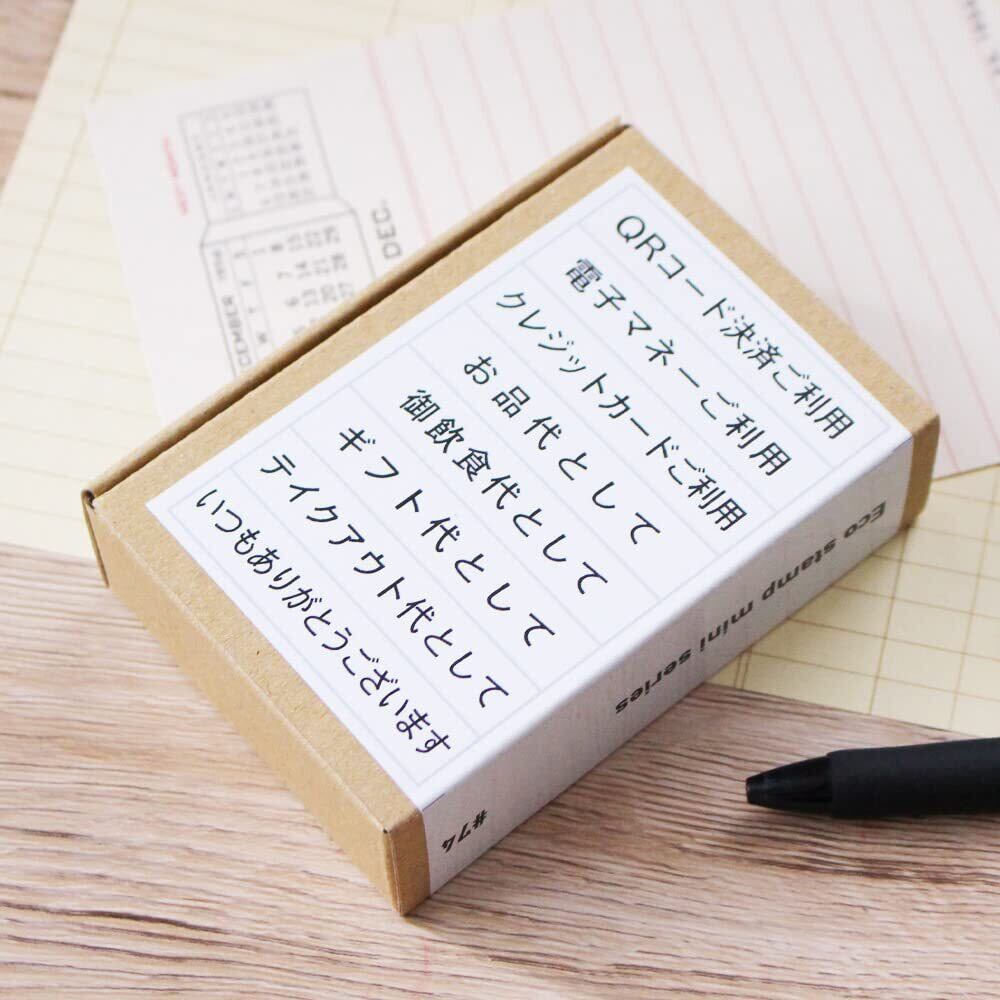 QRコード決済ご利用
電子マネーご利用
クレジットカードご利用
お品代として
御飲食代として
ギフト代として
テイクアウト代として
いつもありがとうございます
Eco stamp mini series
#74
DEC.